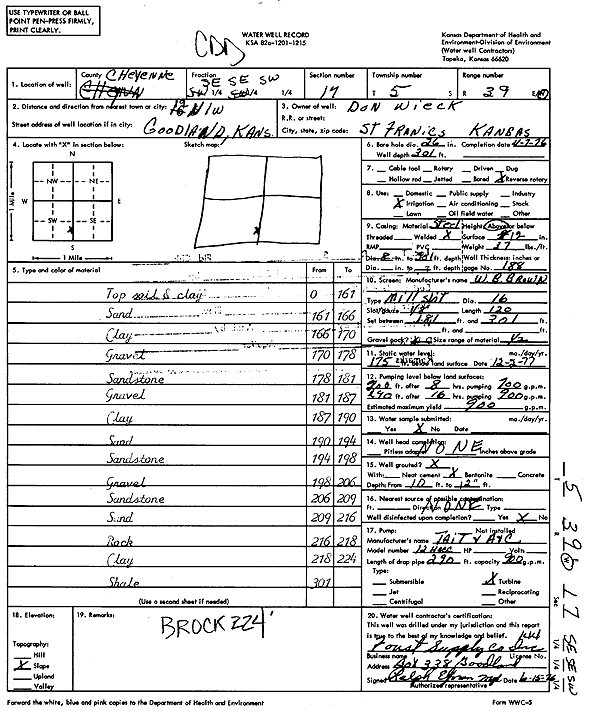 USE TYPEWRITER OR BALL
POINT PEN-PRESS FIRMLY,
PRINT CLEARLY.
CDD
WATER WELL RECORD
KSA 82a-1201-1215
Kansas Department of Health and
Environment-Division of Environment
(Water well Contractors)
Topeka, Kansas 66620
1. Location of well:
County CHEYENNE
Fraction
SE SE SW
1/4 1/4 1/4
Section number
17
Township number
T 5 S
Range number
R 39 E/W
2. Distance and direction from nearest town or city: N/W
Street address of well location if in city: GOODLAND, KANS.
3. Owner of well: DON WIECK
R.R. or street:
City, state, zip code: ST FRANICS KANSAS
4. Locate with "X" in section below:
Sketch map:
N
NW NE
W E
SW SE
X
S
1 Mile
1 Mile
6. Bore hole dia. 26 in. Completion date 4-7-76
Well depth 301 ft.
7. Cable tool Rotary Driven Dug
Hollow rod Jetted Bored X Reverse rotary
8. Use: Domestic Public supply Industry
X Irrigation Air conditioning Stock
Lawn Oil field water Other
9. Casing: Material Steel Height: Above or below
Threaded Welded X Surface 12 in.
RMP PVC Weight 37 lbs./ft.
Dia. in. to ft. depth Wall Thickness: inches or
Dia. in. to ft. depth gage No. 188
10. Screen: Manufacturer's name W.B. Brown
Type Mill Slot Dia. 16
Slot/gauze 1/8 Length 120
Set between 181 ft. and 301 ft.
ft. and ft.
Gravel pack? Size range of material 1/2
11. Static water level: mo./day/yr.
175 ft. below land surface Date
12. Pumping level below land surfaces:
200 ft. after 8 hrs. pumping 700 g.p.m.
290 ft. after 16 hrs. pumping 900 g.p.m.
Estimated maximum yield 900 g.p.m.
13. Water sample submitted: mo./day/yr.
Yes X No Date
14. Well head completion: NONE
Pitless adapter Inches above grade
15. Well grouted? X
With: Neat cement X Bentonite Concrete
Depth: From 10 ft. to 12" ft.
16. Nearest source of possible contamination:
ft. Direction NONE Type
Well disinfected upon completion? Yes X No
17. Pump: Not installed
Manufacturer's name
Model number HP Volts
Length of drop pipe 290 ft. capacity 900 g.p.m.
Type:
Submersible X Turbine
Jet Reciprocating
Centrifugal Other
5. Type and color of material From To
Top soil & clay 0 161
Sand 161 166
Clay 166 170
Gravel 170 178
Sandstone 178 181
Gravel 181 187
Clay 187 190
Sand 190 194
Sandstone 194 198
Gravel 198 206
Sandstone 206 209
Sand 209 216
Rock 216 218
Clay 218 224
Shale 301
(Use a second sheet if needed)
18. Elevation:
Topography:
Hill
X Slope
Upland
Valley
19. Remarks:
BROCK 224'
20. Water well contractor's certification:
This well was drilled under my jurisdiction and this report
is true to the best of my knowledge and belief.
Foust Supply Co Inc
Business name License No.
Address Box 338 Goodland
Signed Date 6-15-76
Authorized representative
5 39 W 17 SE SE SW
T R Sec 1/4 1/4 1/4
Forward the white, blue and pink copies to the Department of Health and Environment
Form WWC-5